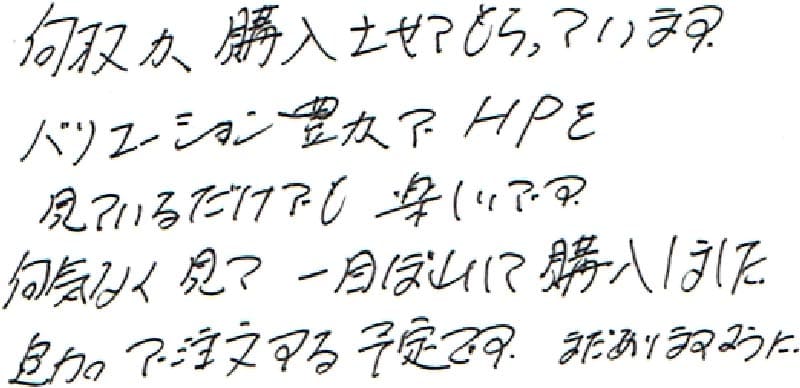 何枚か、購入させてもらっています。
バリエーション豊かで HPを
見ているだけでも 楽しいです。
何気なく 見て 一目ぼれして 購入しました。
追加で注文する予定です。 まだありますように。